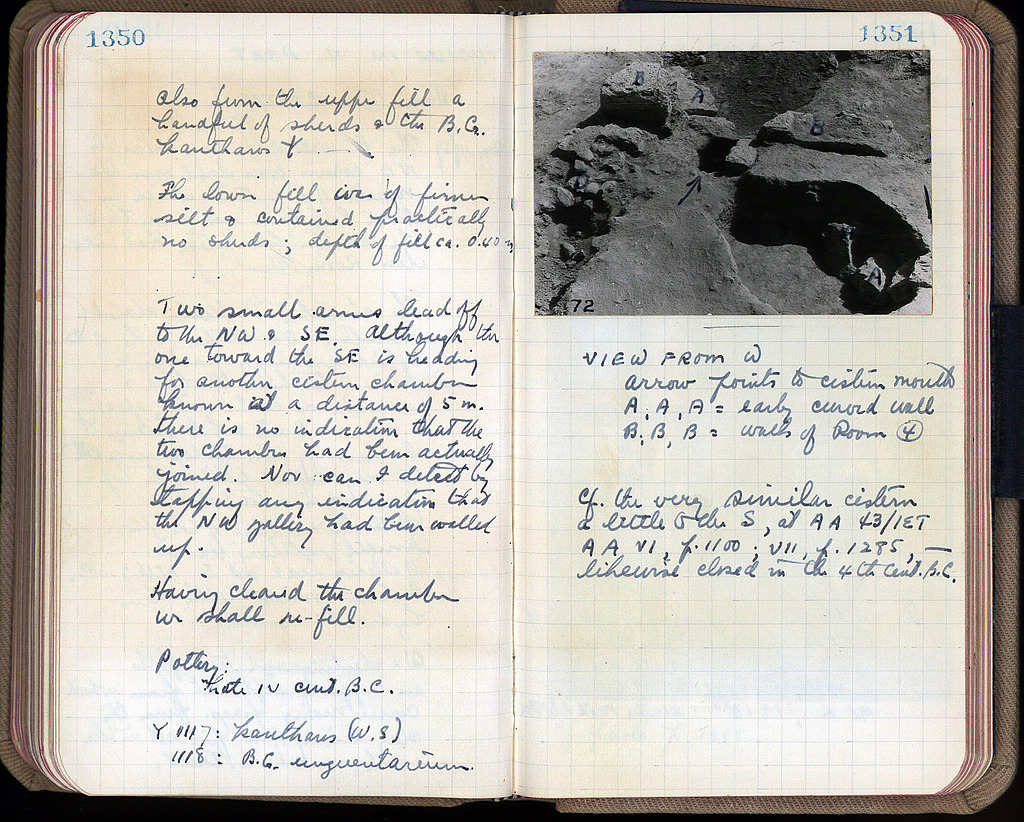 1350
also from the upper fill a
handful of sherds & the B.G.
kantharos Y
The lower fill was of firmer
silt & contained practically
no sherds; depth of fill ca. 0.40 m
Two small arms lead off
to the NW & SE. Although the
one toward the SE is heading
for another cistern chamber
known at a distance of 5 m.
there is no indication that the
two chambers had been actually
joined. Nor can I detect by
tapping any indication that
the NW gallery had been walled
up.
Having cleared the chamber
we shall re-fill.
Pottery:
late IV cent. B.C.
Y 1117: kantharos (W.S)
1118: B.G. unguentarium.
1351
B
A
B
B
A
72
VIEW FROM W
arrow points to cistern mouth
A, A, A = early curved wall
B, B, B = walls of Room 4
Cf. the very similar cistern
a little to the S, at AA 43/ΙΣΤ
AA VI, p. 1100; VII, p. 1285, —
likewise closed in the 4th cent. B.C.